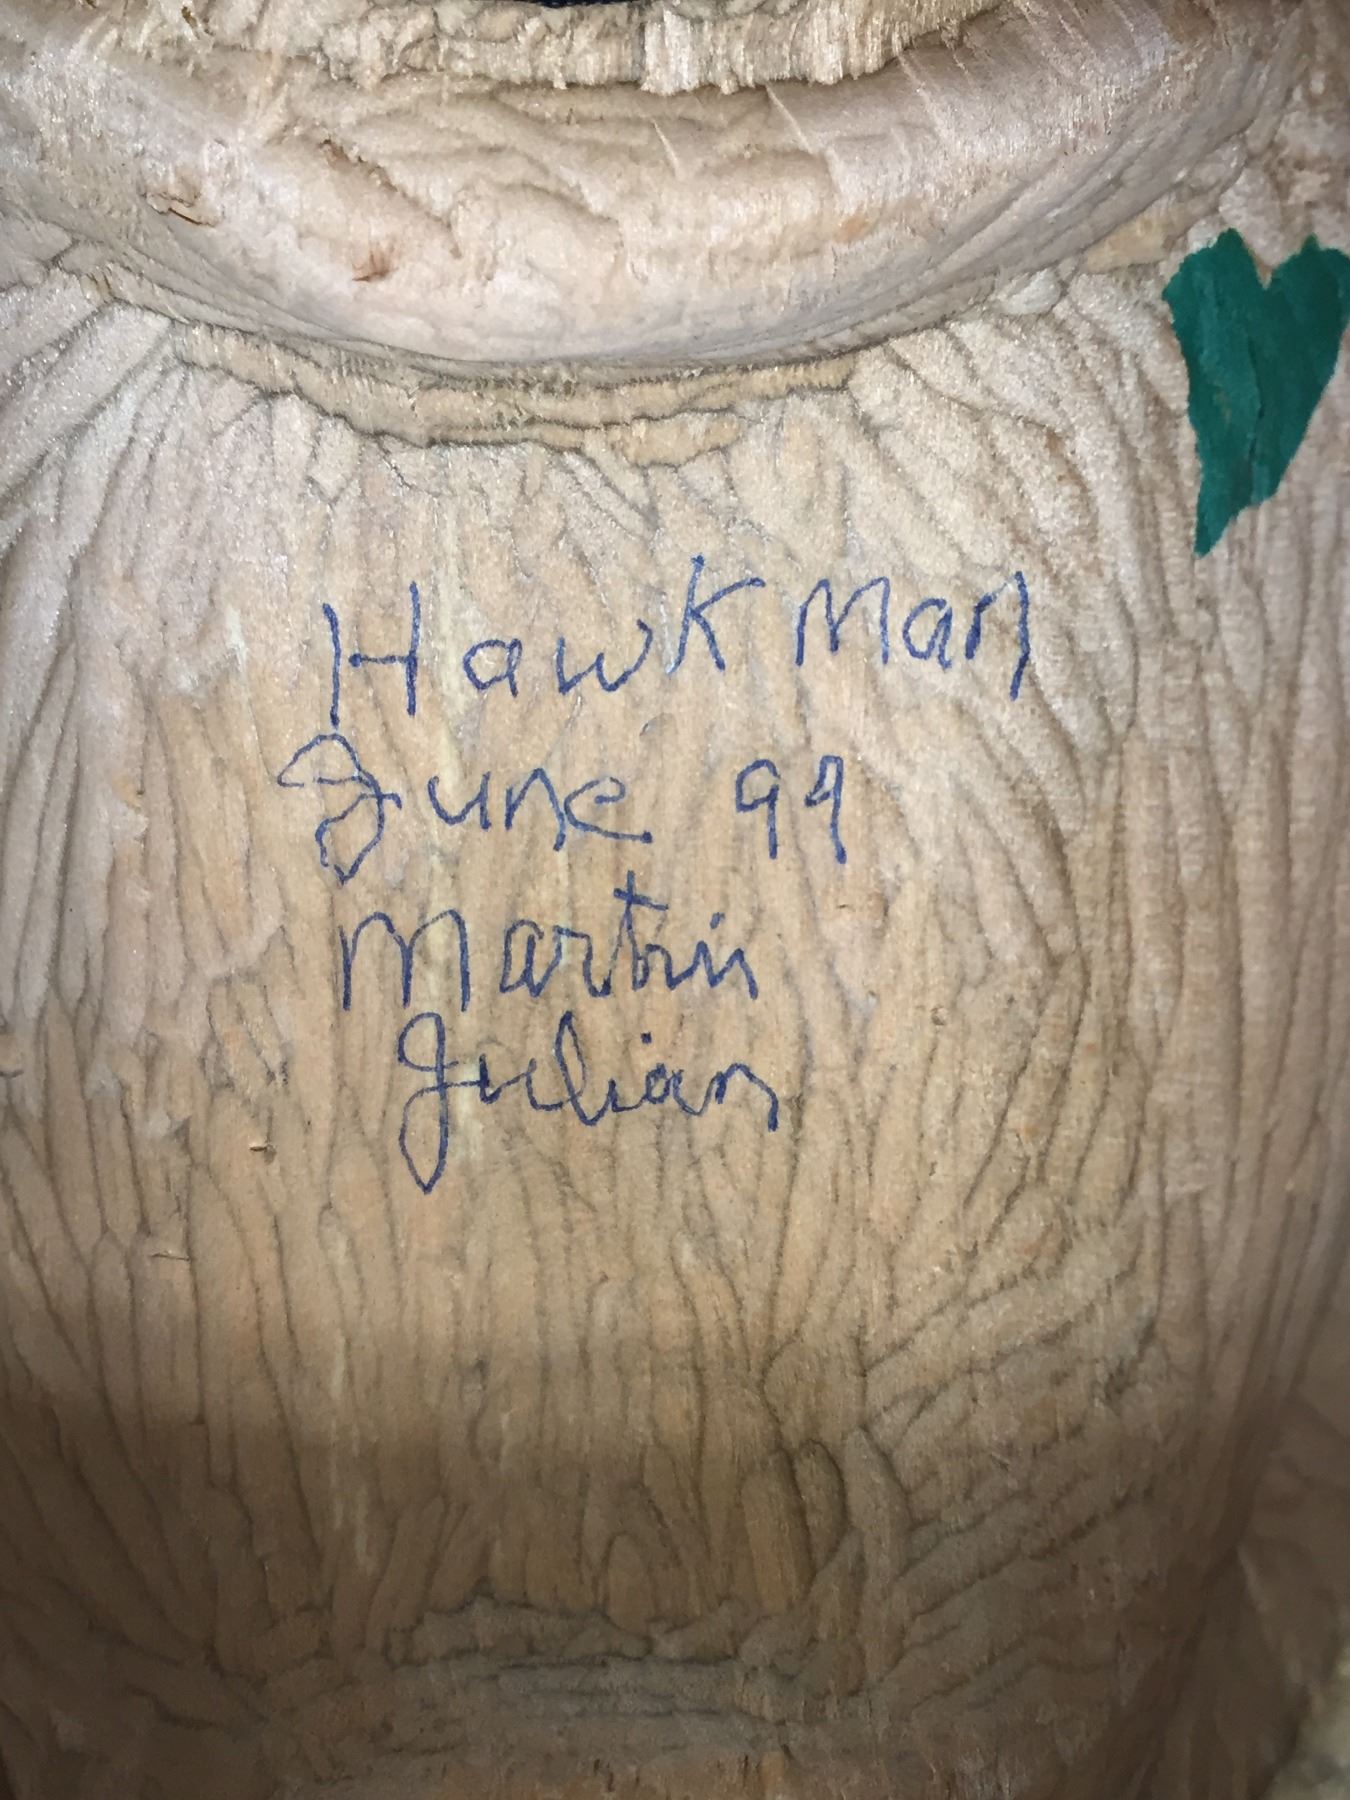 Hawk Man
June 99
Martin
Julian